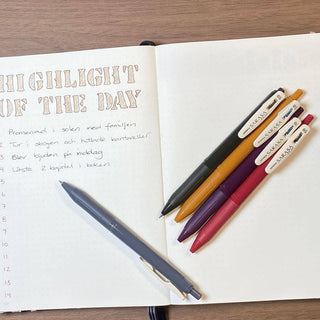 HIGHLIGHT
OF THE DAY
Promenad i solen med familjen
2 Tur i skogen och hittade kantareller
3 Blev bjuden på middag
4 Läste 2 kapitel i boken
5
6
7
8
9
10
11
12
13
14
SARASA
SARASA
SARASA
SARASA